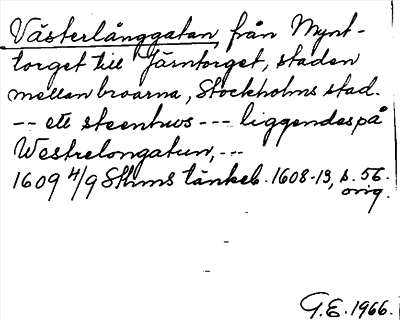 Västerlånggatan, från Mynt-
torget till Järntorget, staden
mellan broarna, Stockholms stad.
-- ett steenhws --- liggendes på
Westrelongatun, ---
1609 4/9 Sthms tänkeb. 1608-13, s. 56.
orig.
G.E. 1966.